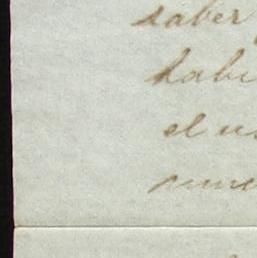 saber
habi
el u